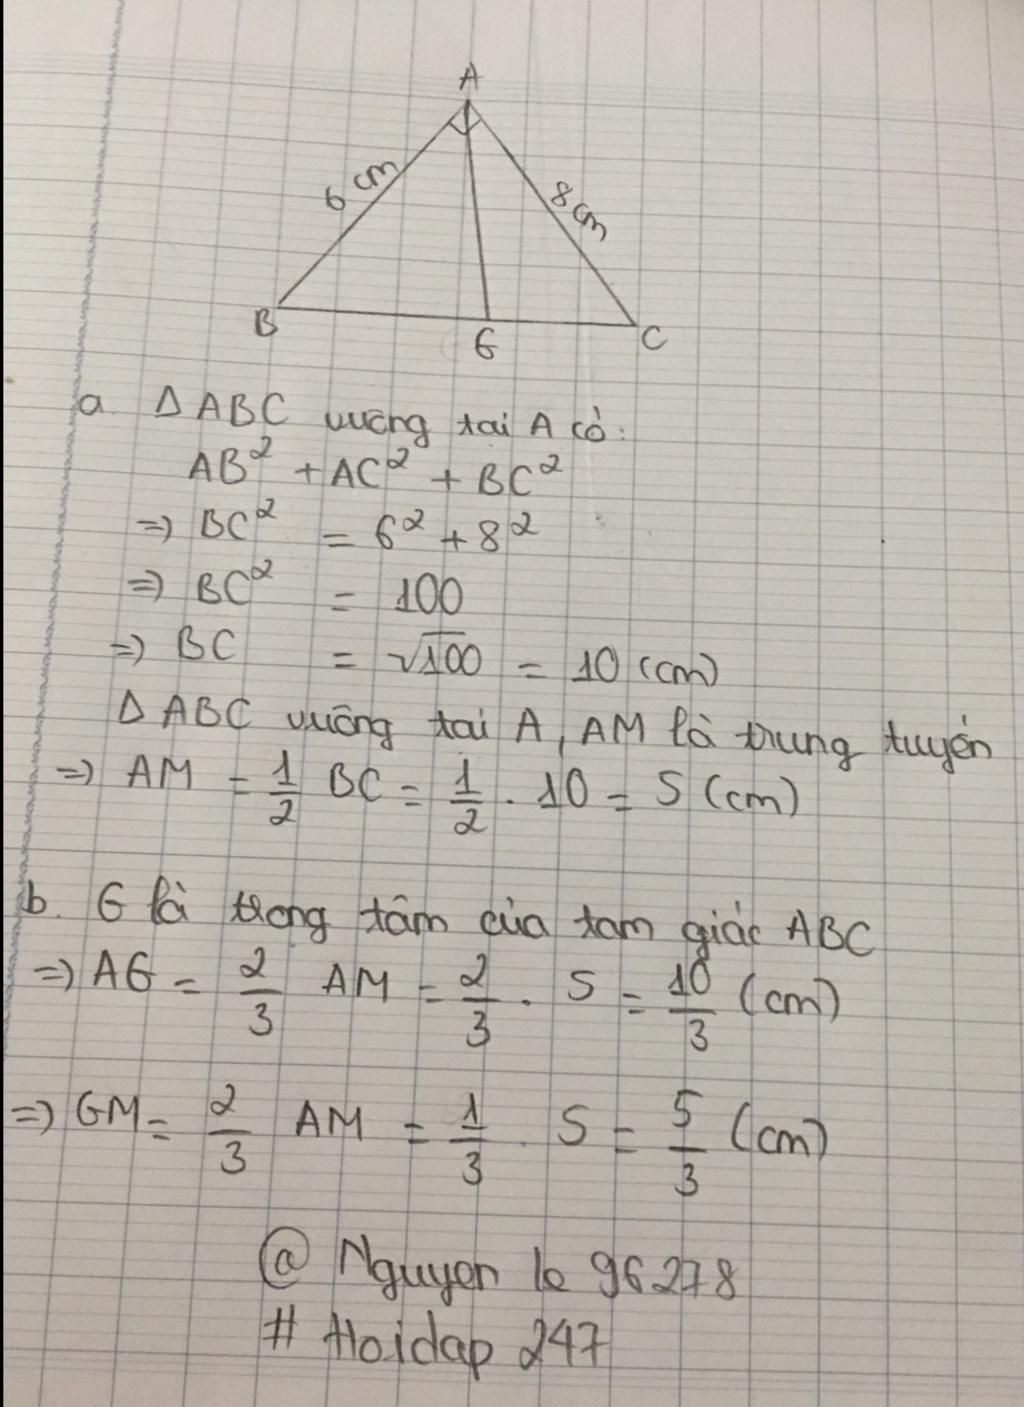 A
6 cm
8 cm
B
G
C
a. Δ ABC vuông tại A có:
AB² + AC² + BC²
=> BC² = 6² + 8²
=> BC² = 100
=> BC = √100 = 10 (cm)
Δ ABC vuông tại A, AM là trung tuyến
=> AM = 1/2 BC = 1/2 . 10 = 5 (cm)
b. G là trọng tâm của tam giác ABC
=> AG = 2/3 AM = 2/3 . 5 = 10/3 (cm)
=> GM = 2/3 AM = 1/3 . 5 = 5/3 (cm)
@ Nguyen le 96278
# Hoidap 247